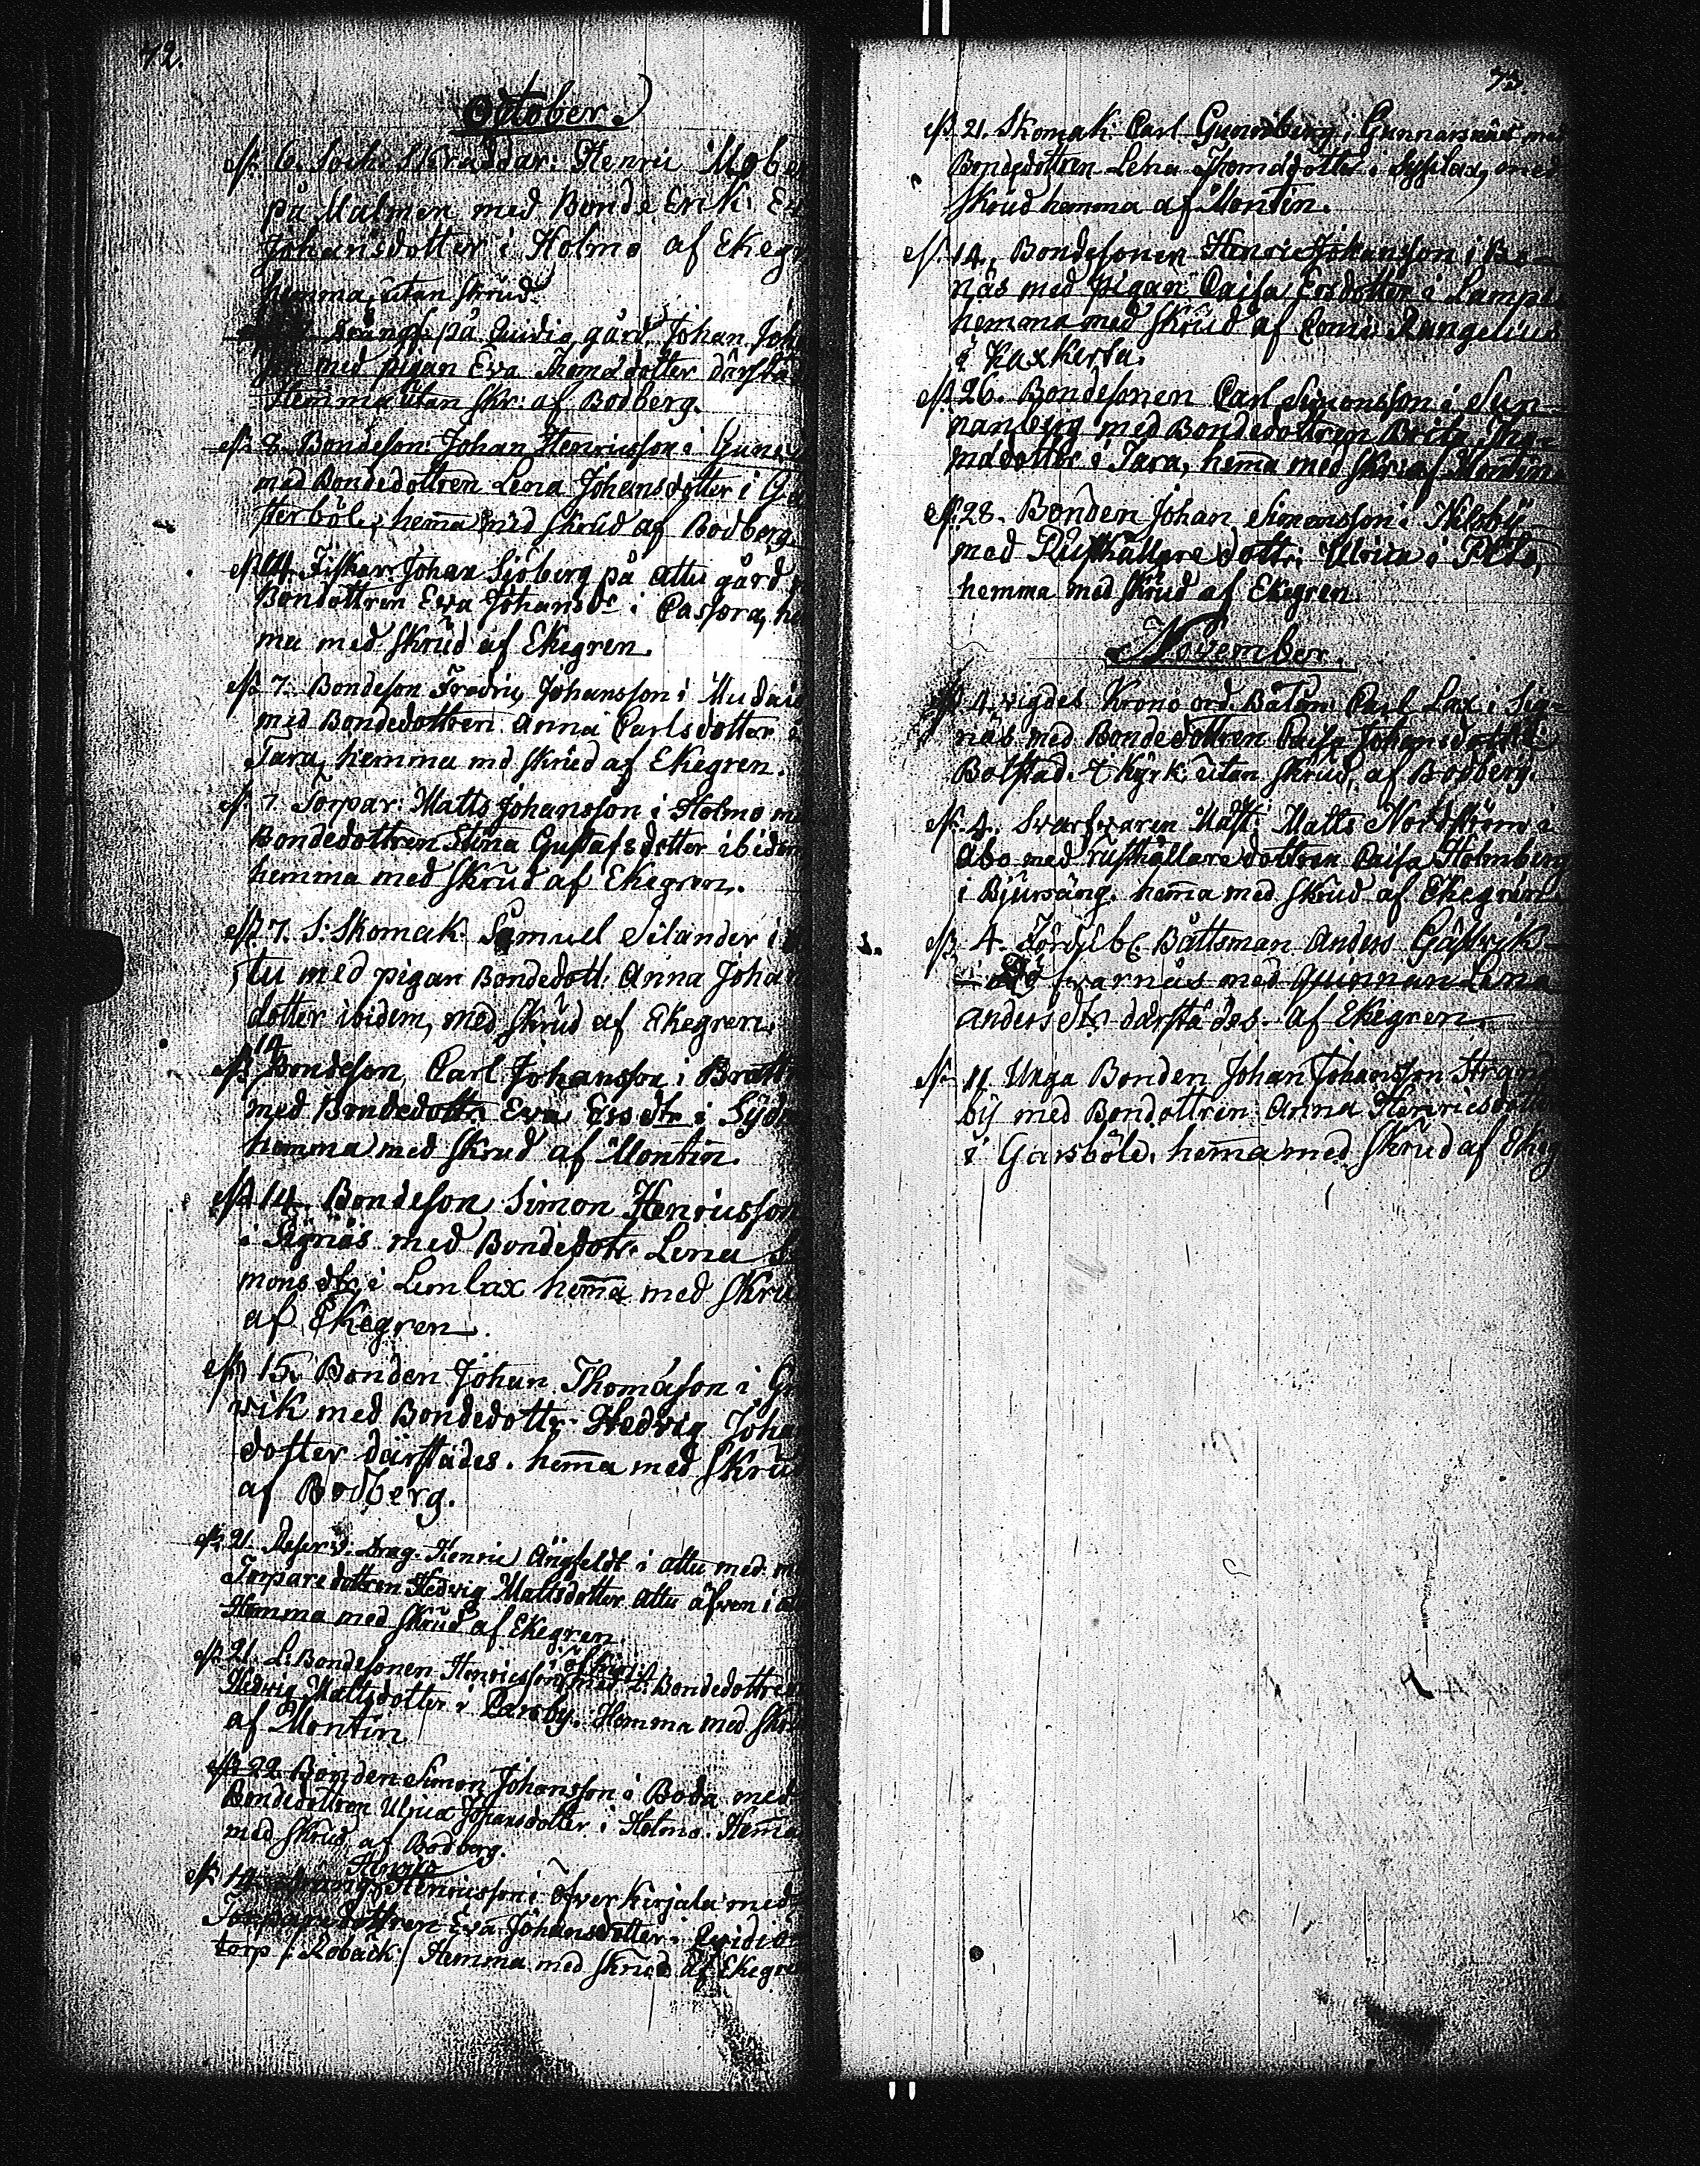 72.
October
6. Sock: Skräddar: Henric Mobe
på Malmen med Bonde Erik:
Johansdotter i Holmo af Ekegr
hemma, utan skrud.
på Qvidia gård, Johan Joh
med pigan Eva Thomædotter därstä
Hemma utan Skr: af Bodberg.
8. Bondeson: Johan Henricsson i Gun
med Bondedottren Lena Johansdotter i
terböle, hema med skrud af Bodberg
Fiskar: Johan Sjöberg på Attu gård
Bondottren Eva Johans dr i Pasfora, he
ma med skrud af Ekegren.
7. Bondeson Fredric Johansson i Mudais
med Bondedottren Anna Carlsdotter i
Tara, hemma md skrud af Ekegren.
7. Torpar: Matts Johansson i Holmo m
Bondedottren Stina Gustafsdotter ibidem
hemma med skrud af Ekegren.
7. S: Skomak: Samuel Silander i
tu med pigan Bondedott: Anna Johan
dotter ibidem, med skrud af Ekegren.
14
Bondeson, Carl Johansson i Bratt
med Bondedottr. Eva Ers dtr i Sydm
hemma med skrud af Montin.
14. Bondeson Simon Henricsson
i Pignäs med Bondedotr. Lena Si
mons dtr i Lemlax hema med skru
af Ekegren.
15. Bonden Johan Thomasson i Gr
wik med Bondedottr. Hedvig Joha
dotter därstädes. hema med skru
af Bodberg.
21. Reserv: Drag. Henric Ängfeldt i Attu med
Torparedottren Hedvig Mattsdotter Attu äfven i
Hemma med skrud af Ekegren.
21. L. Bondesonen Henricsson med L. Bondedottre
Hedvig Mattsdotter i Parsby. Hemma med skr
af Montin
22. Bonden Simon Johansson i Boda med
Bondedottren Ulrica Johansdotter i Holmo. Hema
med skrud, af Bodberg.
Henric
14. Henricsson i Öfver Kirjala med
Torparedottren Eva Johansdotter i Qvidia
torp /: Roback:/ Hemma med skrud af Ekegre
73.
21. Skomak. Carl Gunnberg i Gunnarsnäs me
Bondedottren Lena Thomædotter i Sysilax, med
skrud hemma af Montin.
14. Bondesonen Henric Johansson i Bo
näs med pigan Caisa Ersdotter i Lampi
hemma med skrud af Comi: Rangelius
i Kaxkerta.
26. Bondesonen Carl Simonsson i Sun
nanberg med Bondedottren Brita Tho
mædotter i Tara, hema med skr: af Montin.
28. Bonden Johan Simonsson i Nilsby
med Rusthållare dottr: Ulrica i Pets,
hemma med skrud af Ekegren.
November.
4. vigdes Krono ord. Båtsm: Carl Lax i Sig
näs med Bondedottren Caisa Johansdotter i
Bolstad. i Kyrk. utan skrud, af Bodberg.
4. Svarfvaren Mäst: Matts Nordström i
Åbo med rusthållare dottren Caisa Holmberg
i Bjursäng. hema med skrud af Ekegren.
4. Båttsman Anders Gästrik
farnäs med qvinnan Lena
Anders dtr därstädes. af Ekegren.
11. Unga Bonden Johan Johansson Strand
by med Bondottren Anna Henricsdotter
i Garsböle. hema med skrud af Ekeg